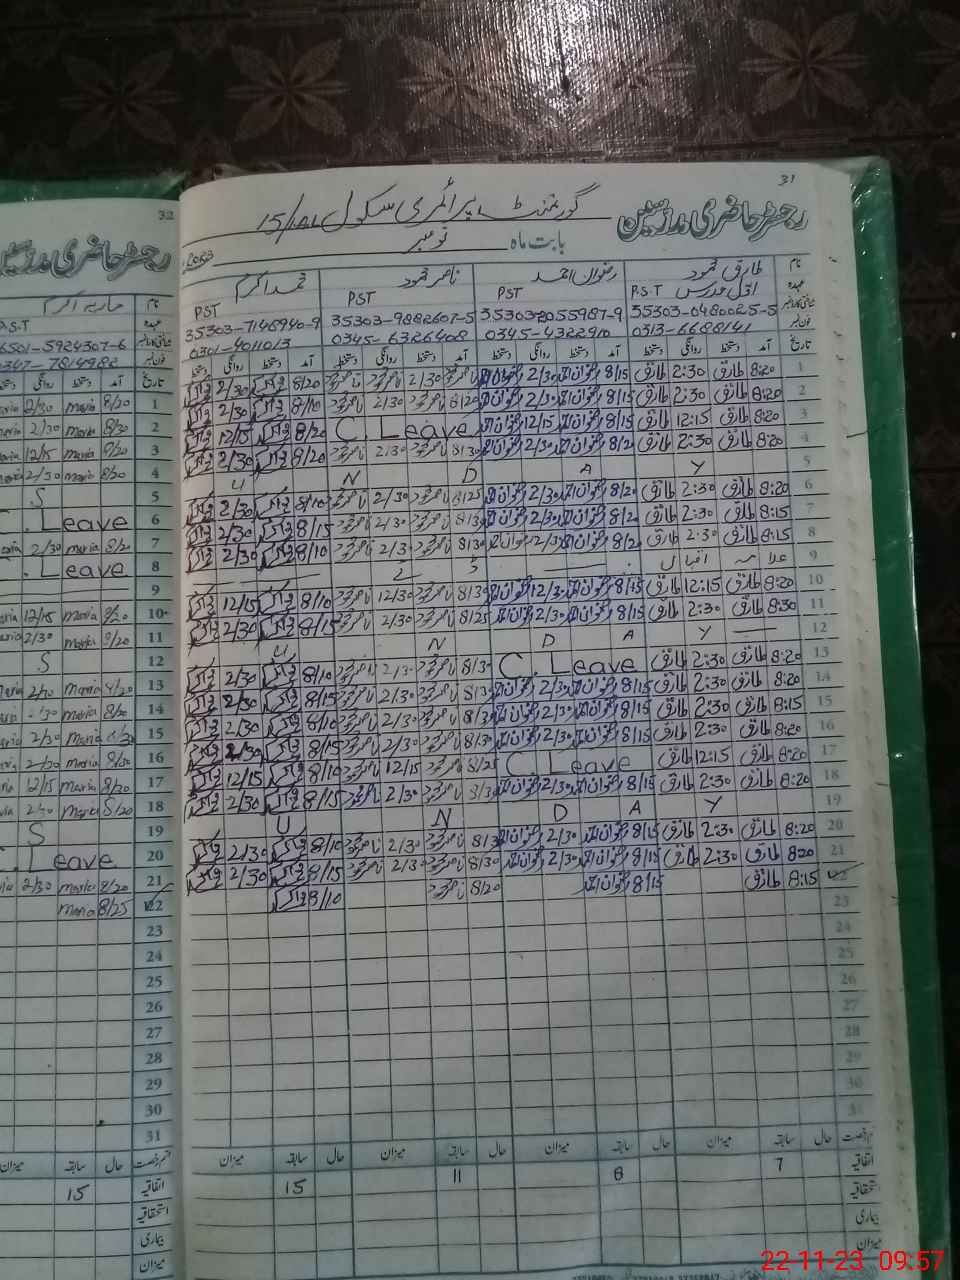 31
رجسٹر حاضری مدرسین گورنمنٹ پرائمری سکول 15/1AL
بابت ماہ نومبر 2023
نام طارق محمود رضوان احمد ناصر محمود محمد اکرم
عہدہ P.S.T اول مدرس PST PST PST
35303-0480025-5 35303-2055987-9 35303-9882607-5 35303-7148940-9
فون نمبر 0313-6688141 0345-4322910 0345-6326408 0301-4011013
تاریخ آمد دستخط روانگی دستخط آمد دستخط روانگی دستخط آمد دستخط روانگی دستخط آمد دستخط روانگی دستخط
1 8:20 طارق 2:30 طارق 8/15 رضوان احمد 2/30 رضوان احمد ناصر محمود 2/30 ناصر محمود 8/20 2/30
2 8:20 طارق 2:30 طارق 8/15 رضوان احمد 2/30 رضوان احمد 8/20 ناصر محمود 2/30 ناصر محمود 8/10 2/30
3 8:20 طارق 12:15 طارق 8/15 رضوان احمد 12/15 رضوان احمد C. Leave 8/20 12/15
4 8:20 طارق 2:30 طارق 8/20 رضوان احمد 2/30 رضوان احمد 8/30 ناصر محمود 2/30 ناصر محمود 8/20 2/30
5 U N D A Y
6 8:20 طارق 2:30 طارق 8/20 رضوان احمد 2/30 رضوان احمد 8/25 ناصر محمود 2/30 ناصر محمود 8/10 2/30
7 8:15 طارق 2:30 طارق 8/20 رضوان احمد 2/30 رضوان احمد 8/30 ناصر محمود 2/30 ناصر محمود 8/15 2/30
8 8:15 طارق 2:30 طارق 8/20 رضوان احمد 2/30 رضوان احمد 8/30 ناصر محمود 2/30 ناصر محمود 8/10 2/30
9 علامہ اقبال ڈے
10 8:20 طارق 12:15 طارق 8/15 رضوان احمد 12/30 رضوان احمد 8/30 ناصر محمود 12/30 ناصر محمود 8/10 12/15
11 8:30 طارق 2:30 طارق 8/15 رضوان احمد 2/30 رضوان احمد 8/25 ناصر محمود 2/30 ناصر محمود 8/15 2/30
12 U N D A Y
13 8:20 طارق 2:30 طارق C. Leave 8/30 ناصر محمود 2/30 ناصر محمود 8/10 2/30
14 8:20 طارق 2:30 طارق 8/15 رضوان احمد 2/30 رضوان احمد 8/30 ناصر محمود 2/30 ناصر محمود 8/15 2/30
15 8:15 طارق 2:30 طارق 8/15 رضوان احمد 2/30 رضوان احمد 8/30 ناصر محمود 2/30 ناصر محمود 8/10 2/30
16 8:20 طارق 2:30 طارق 8/15 رضوان احمد 2/30 رضوان احمد 8/30 ناصر محمود 2/30 ناصر محمود 8/15 2/30
17 8:20 طارق 12:15 طارق C. Leave 8/25 ناصر محمود 12/15 ناصر محمود 8/10 12/15
18 8:20 طارق 2:30 طارق 8/15 رضوان احمد 2/30 رضوان احمد 8/30 ناصر محمود 2/30 ناصر محمود 8/15 2/30
19 U N D A Y
20 8:20 طارق 2:30 طارق 8/15 رضوان احمد 2/30 رضوان احمد 8/30 ناصر محمود 2/30 ناصر محمود 8/10 2/30
21 8:20 طارق 2:30 طارق 8/15 رضوان احمد 2/30 رضوان احمد 8/30 ناصر محمود 2/30 ناصر محمود 8/15 2/30
22 8:15 طارق 8/15 رضوان احمد 8/20 ناصر محمود 8/10
23
24
25
26
27
28
29
30
31
حال سابقہ میزان حال سابقہ میزان حال سابقہ میزان حال سابقہ میزان
اتفاقیہ 7 8 11 15
استحقاقیہ
بیماری
میزان
32
رجسٹر حاضری مدرسین
نام ماریہ اکرم
عہدہ P.S.T
6501-5924307-6
0347-7814982
تاریخ آمد دستخط روانگی دستخط
1 8/20 maria 2/30 maria
2 8/30 maria 2/30 maria
3 8/20 maria 12/15 maria
4 8/20 maria 2/30 maria
5 S
6 C. Leave
7 8/20 maria 2/30 maria
8 C. Leave
9
10 8/20 maria 12/15 maria
11 8/20 maria 2/30 maria
12 S
13 8/20 maria 2/30 maria
14 8/20 maria 2/30 maria
15 8/30 maria 2/30 maria
16 8/30 maria 2/30 maria
17 8/20 maria 12/15 maria
18 8/20 maria 2/30 maria
19 S
20 C. Leave
21 8/20 maria 2/30 maria
22 8/25 maria
23
24
25
26
27
28
29
30
31
حال سابقہ میزان
اتفاقیہ 15
استحقاقیہ
بیماری
میزان
22-11-23 09:57